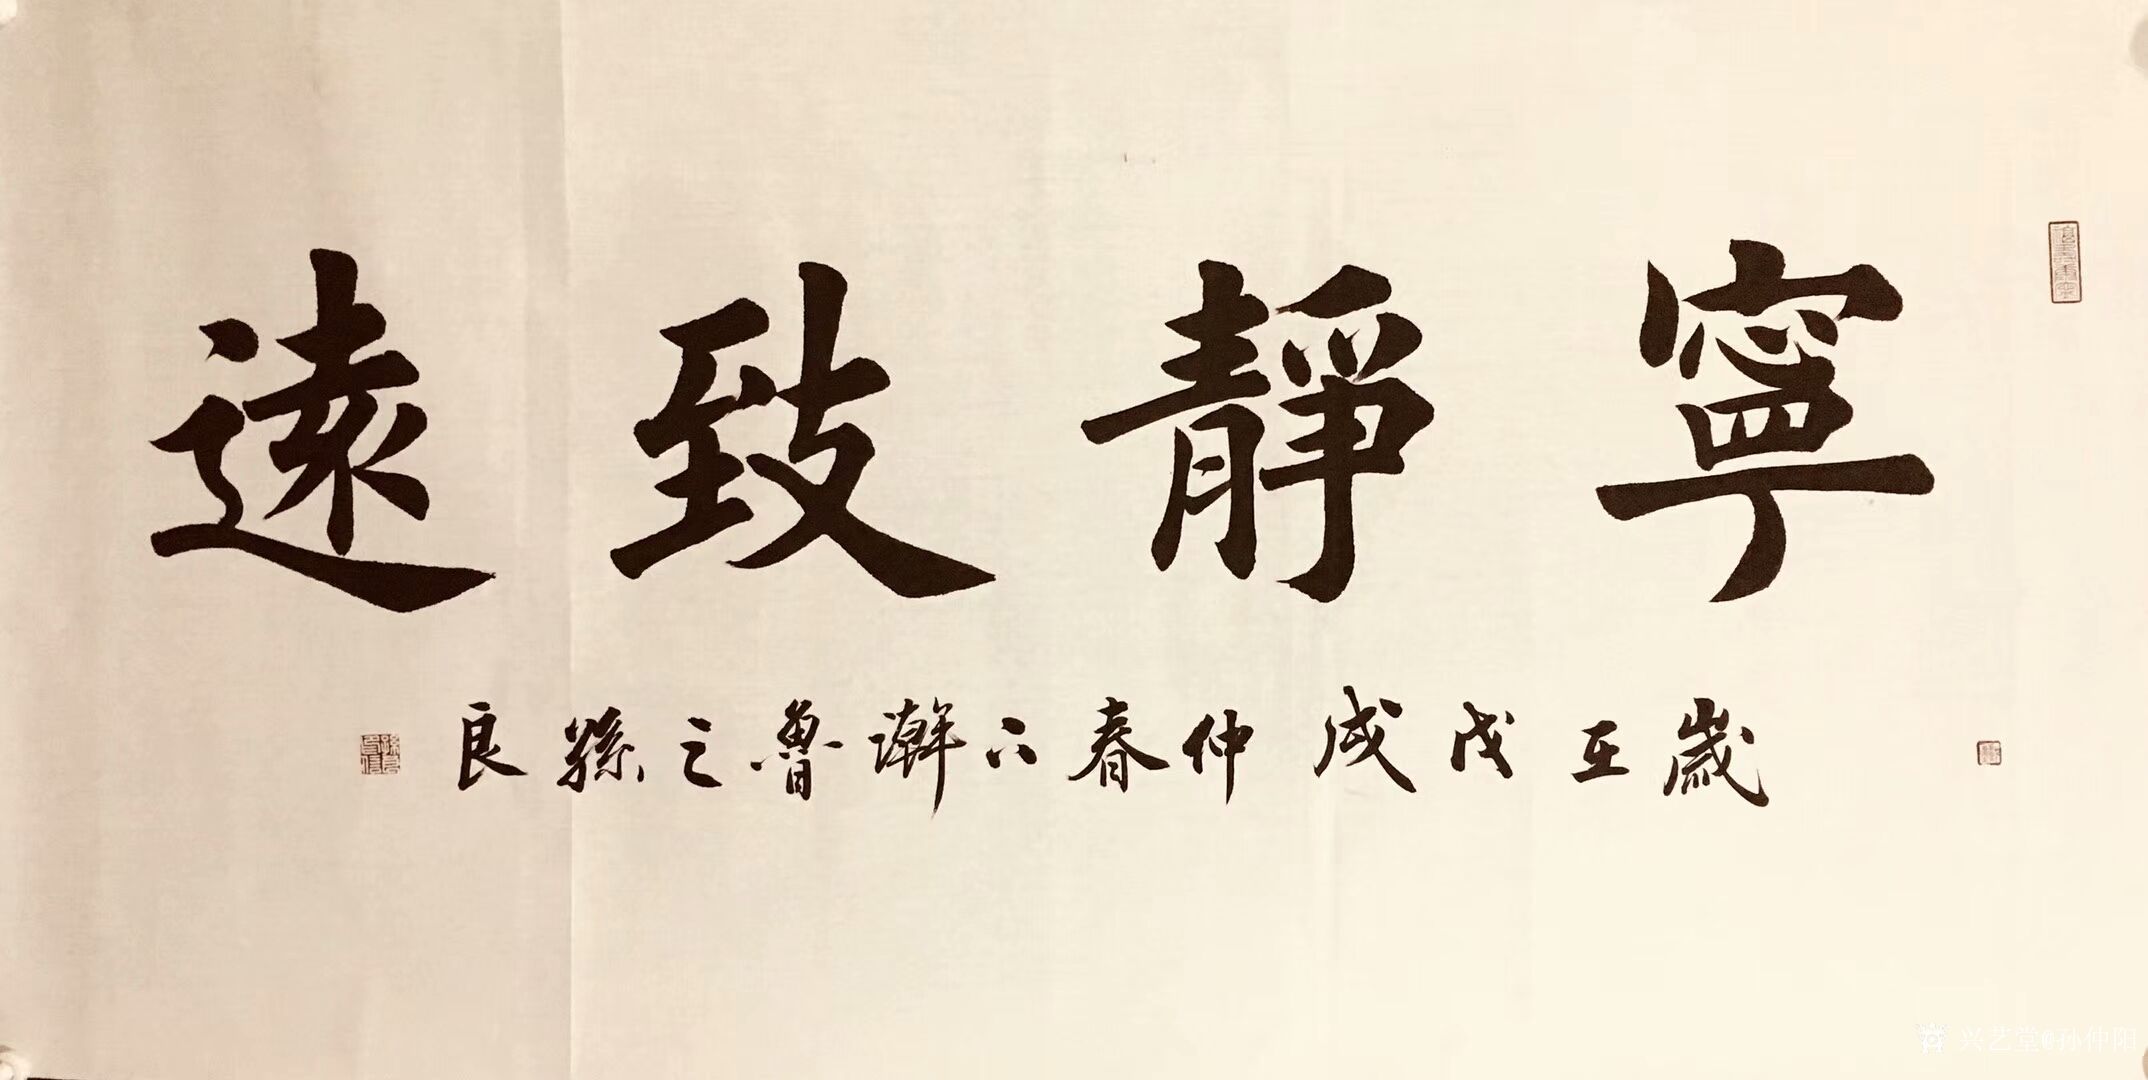 寧靜致遠
歲在戊戌仲春下澣魯之孫良
兴艺堂@孙仲阳